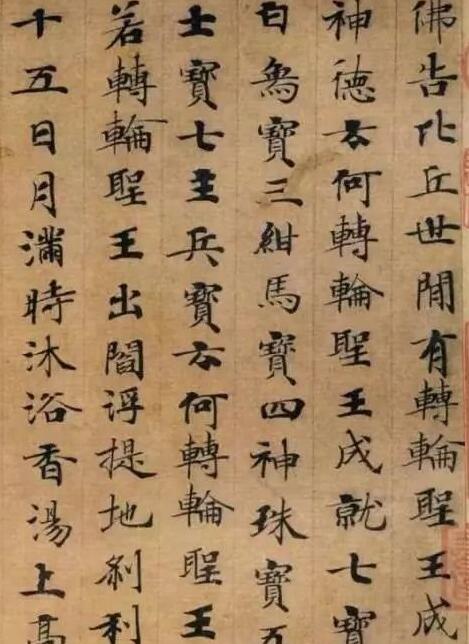 佛告比丘世閒有轉輪聖王成
神德云何轉輪聖王成就七寶
白象寶三紺馬寶四神珠寶五
士寶七主兵寶云何轉輪聖王
若轉輪聖王出閻浮提地剎利
十五日月滿時沐浴香湯上高